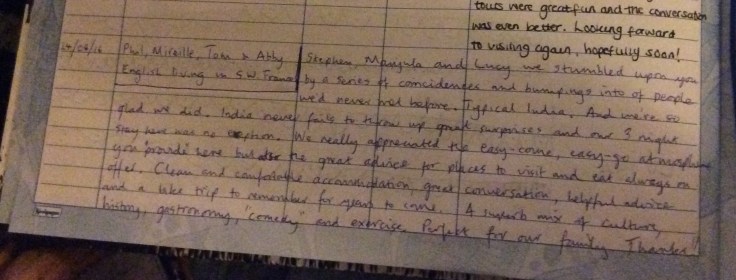 tours were great fun and the conversation
was even better. Looking forward
to visiting again, hopefully soon!
Phil, Mireille, Tom & Abby
English living in S.W. France
Stephen, Manjula and Lucy we stumbled upon you
by a series of concidences and bumpings into of people
we'd never met before. Typical India. And we're so
glad we did. India never fails to throw up great surprises and our 3 night
stay here was no exeption. We really appreciated the easy-come, easy-go atmosphere
you provide here but also the great advice for places to visit and eat always on
offer. Clean and comfortable accommodation, great conversation, helpful advice
and a bike trip to remember for years to come. A superb mix of culture,
history, gastronomy, "comedy" and exercise. Perfect for our family. Thanks!